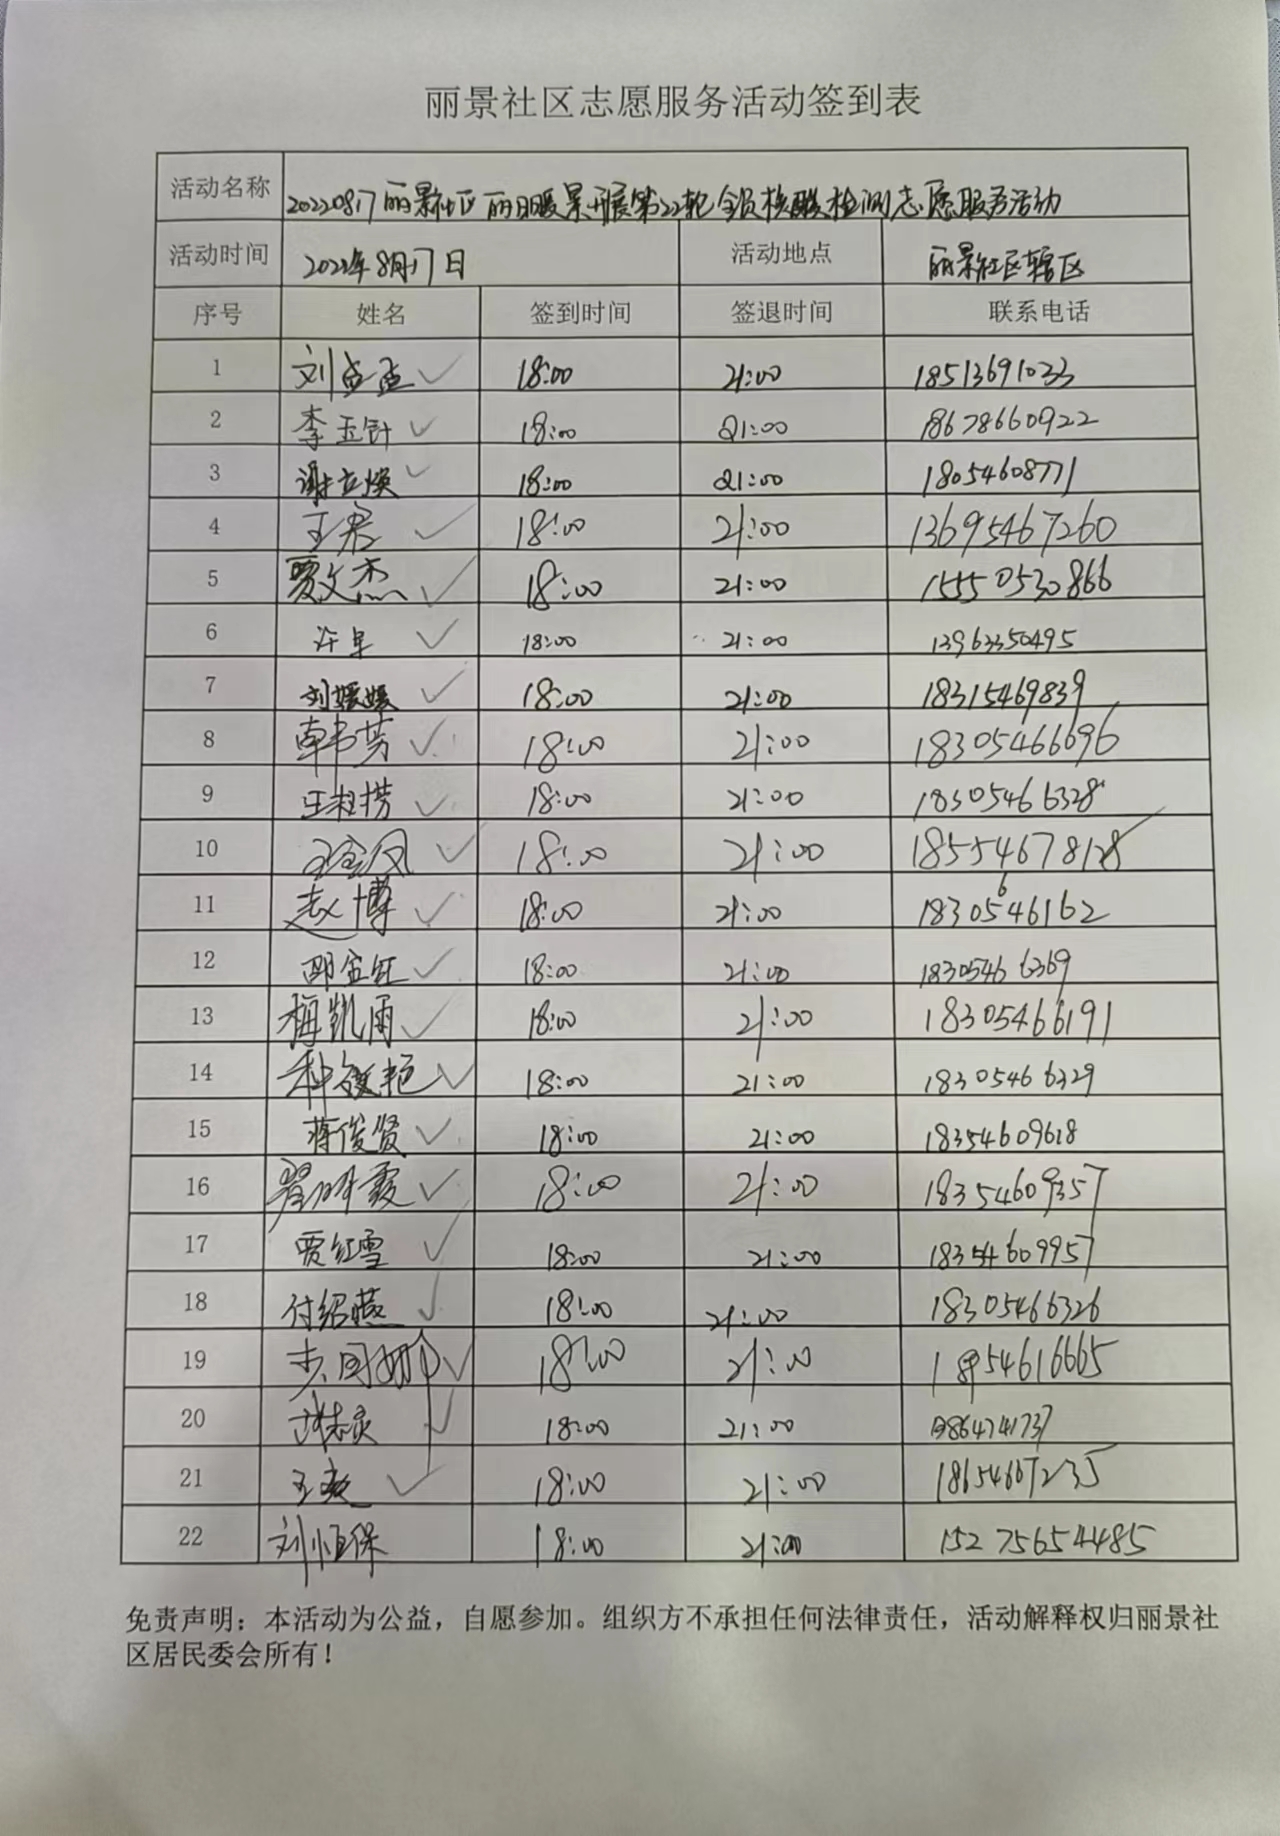 丽景社区志愿服务活动签到表
活动名称 20220817丽景社区丽日暖景开展第22轮全员核酸检测志愿服务活动
活动时间 2022年8月17日 活动地点 丽景社区辖区
序号 姓名 签到时间 签退时间 联系电话
1 刘孟孟 18:00 21:00 18513691033
2 李玉针 18:00 21:00 18678660922
3 谢立焕 18:00 21:00 18054608771
4 王君 18:00 21:00 13695467260
5 贾文杰 18:00 21:00 15550530866
6 许卓 18:00 21:00 13963350495
7 刘媛媛 18:00 21:00 18315469839
8 18:00 21:00 18305466696
9 18:00 21:00 18305466328
10 王金凤 18:00 21:00 18554678128
11 赵博 18:00 21:00 18305466162
12 18:00 21:00 18305466369
13 梅凯雨 18:00 21:00 18305466191
14 18:00 21:00 18305466329
15 蒋俊贤 18:00 21:00 18354609618
16 翟明霞 18:00 21:00 18354609357
17 贾红雪 18:00 21:00 18354609957
18 付绍燕 18:00 21:00 18305466326
19 18:00 21:00
20 18:00 21:00
21 18:00 21:00 18654667235
22 刘恒保 18:00 21:00 15275654485
免责声明：本活动为公益，自愿参加。组织方不承担任何法律责任，活动解释权归丽景社
区居民委会所有！